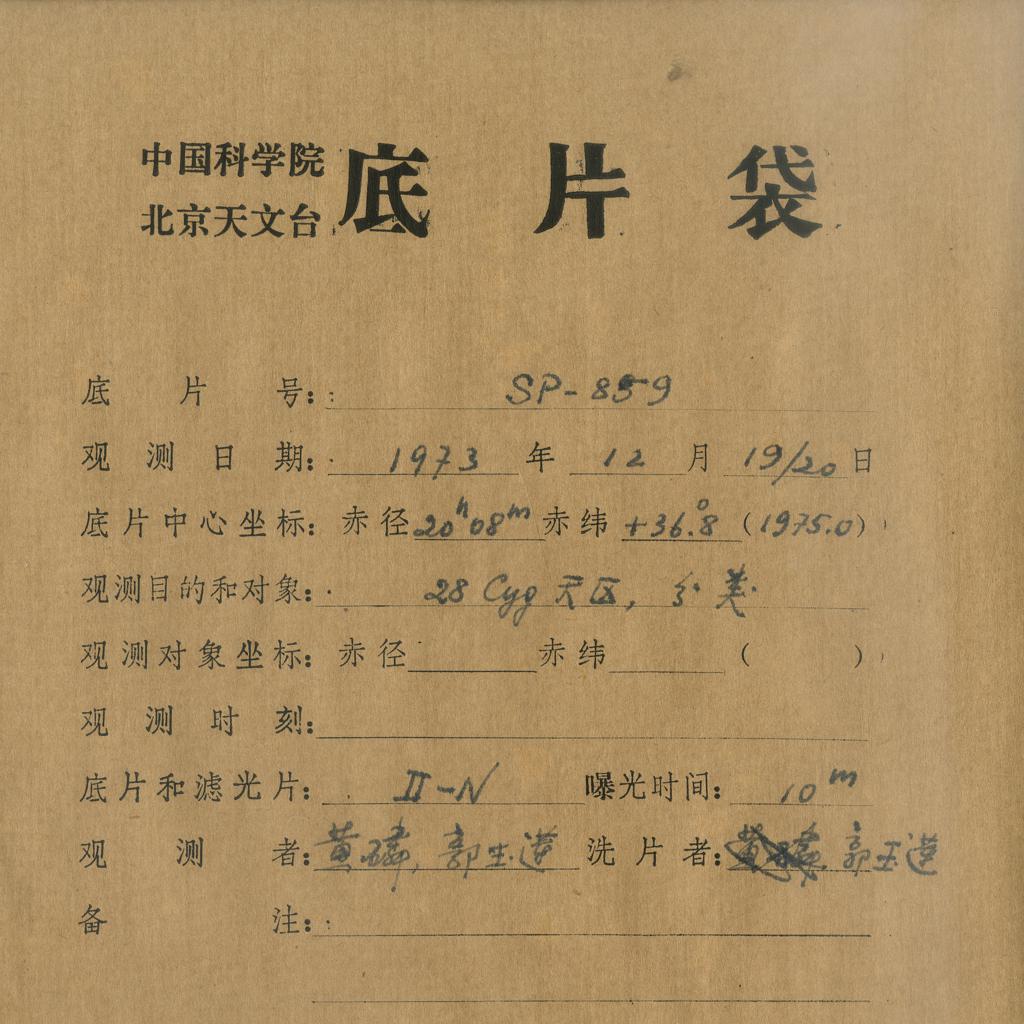 中国科学院
北京天文台
底片袋
底片号: SP-859
观测日期: 1973年12月19/20日
底片中心坐标: 赤径20h08m赤纬+36°.8(1975.0)
观测目的和对象: 28 Cyg 天区, 分类
观测对象坐标: 赤径 赤纬 ( )
观测时刻:
底片和滤光片: II-N 曝光时间: 10m
观测者: 黄磷, 郭玉莲 洗片者: 郭玉莲
备注: